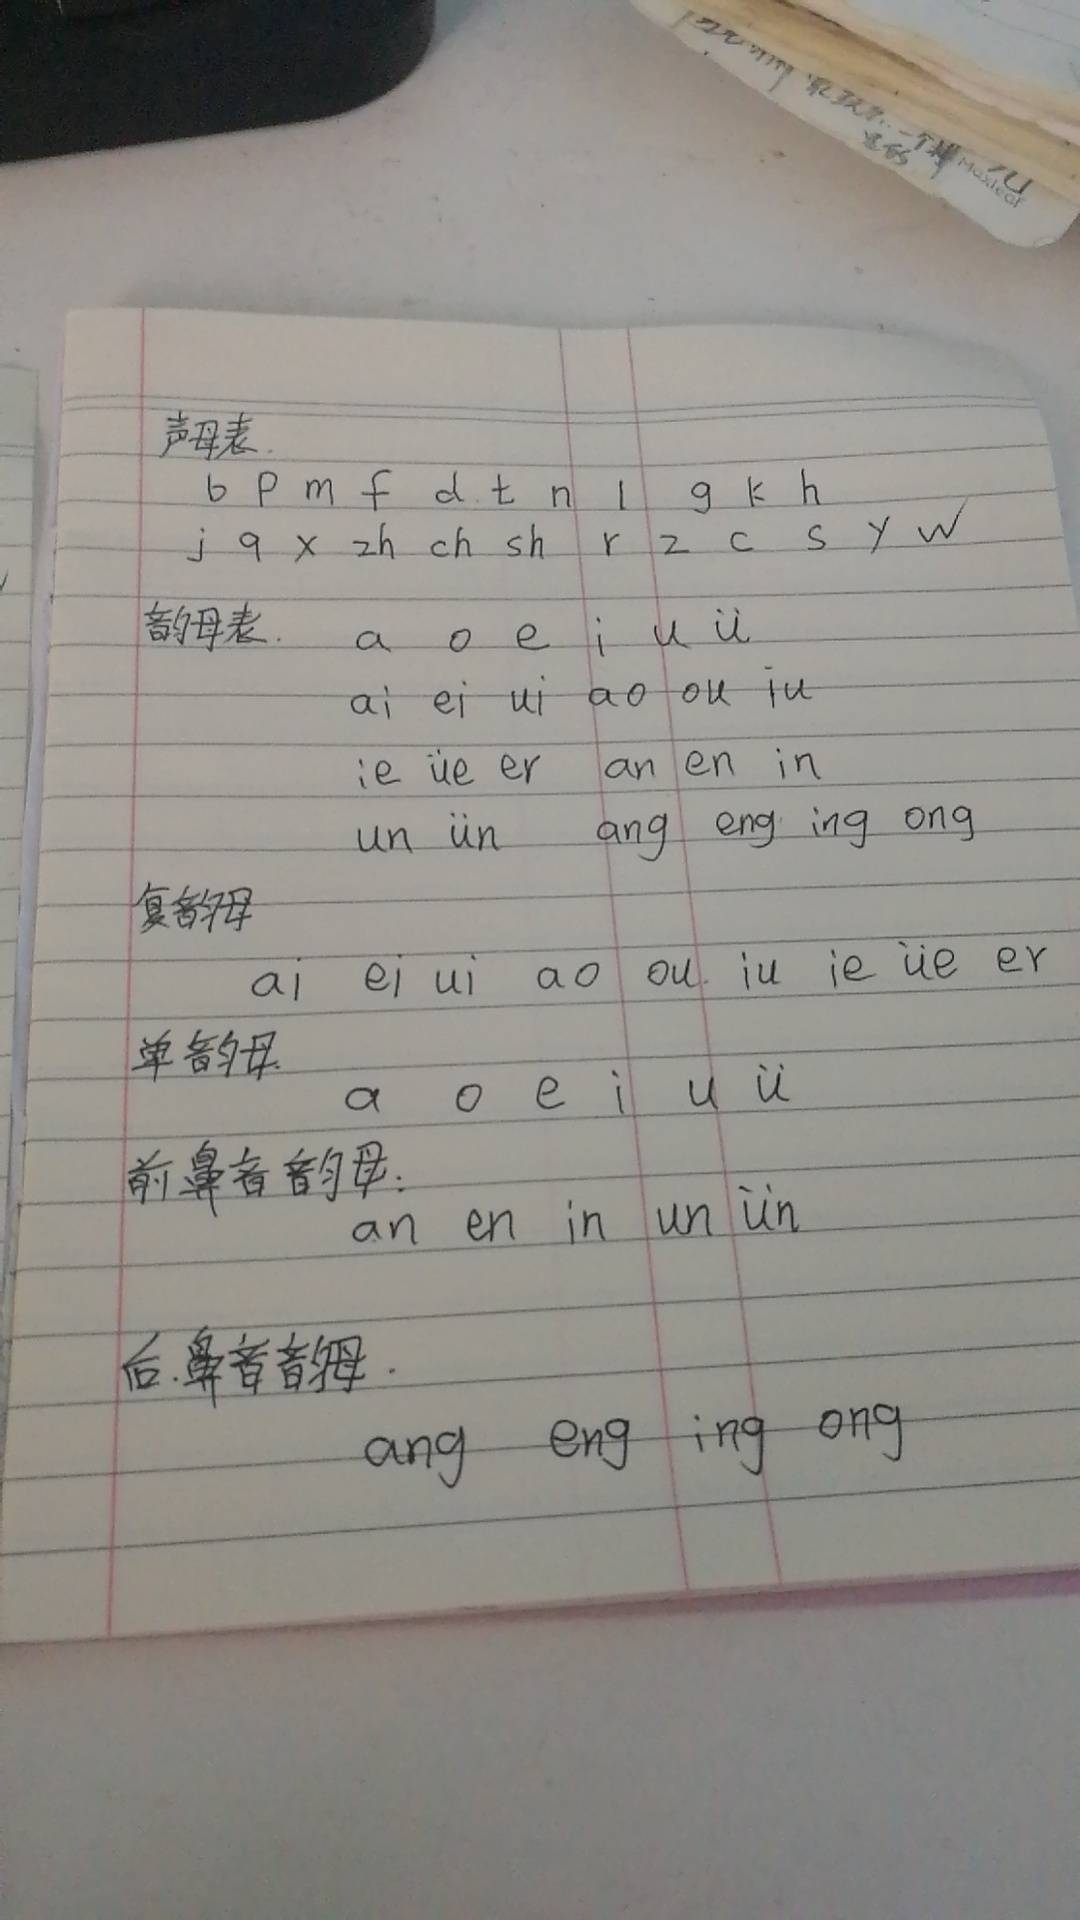 Maxleaf
声母表.
b p m f d t n l g k h
j q x zh ch sh r z c s y w
韵母表. a o e i u ü
ai ei ui ao ou iu
ie üe er an en in
un ün ang eng ing ong
复韵母
ai ei ui ao ou iu ie üe er
单韵母
a o e i u ü
前鼻音韵母:
an en in un ün
后鼻音韵母.
ang eng ing ong